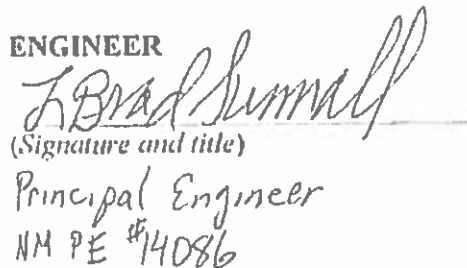 ENGINEER
L Brad Sumrall
(Signature and title)
Principal Engineer
NM PE #14086